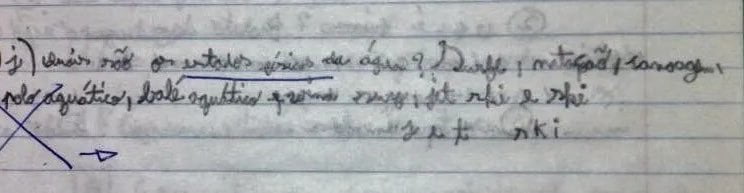 j) Quais são os estados físicos da água? Surfe, natação, canoagem,
polo aquático, balé aquático jet ski e ski
j e t ski